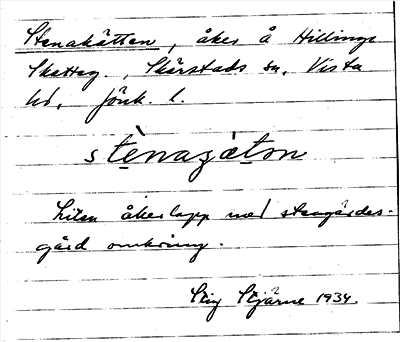 Stenakätten, åker å Hillinge
Skatteg., Skärstads sn, Vista
hd, Jönk. l.
stènagä̀tən
Liten åkerlapp med stengärdes-
gård omkring.
Stig Stjärne 1934.